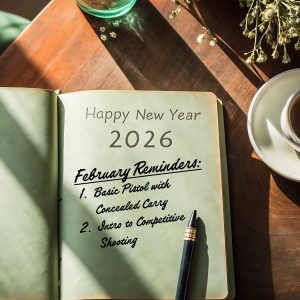 Happy New Year
2026
February Reminders:
1. Basic Pistol with
Concealed Carry
2. Intro to Competitive
Shooting